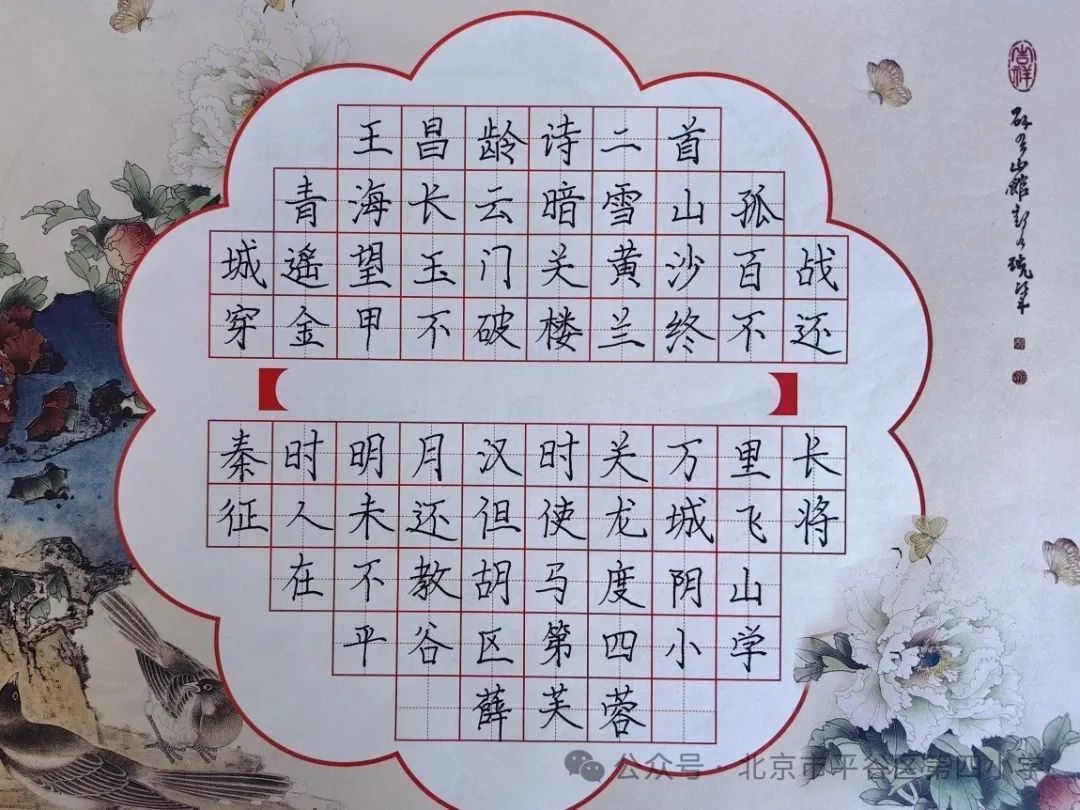 王昌龄诗二首
青海长云暗雪山孤
城遥望玉门关黄沙百战
穿金甲不破楼兰终不还
秦时明月汉时关万里长
征人未还但使龙城飞将
在不教胡马度阴山
平谷区第四小学
薛芙蓉
吉祥
公众号·北京市平谷区第四小学